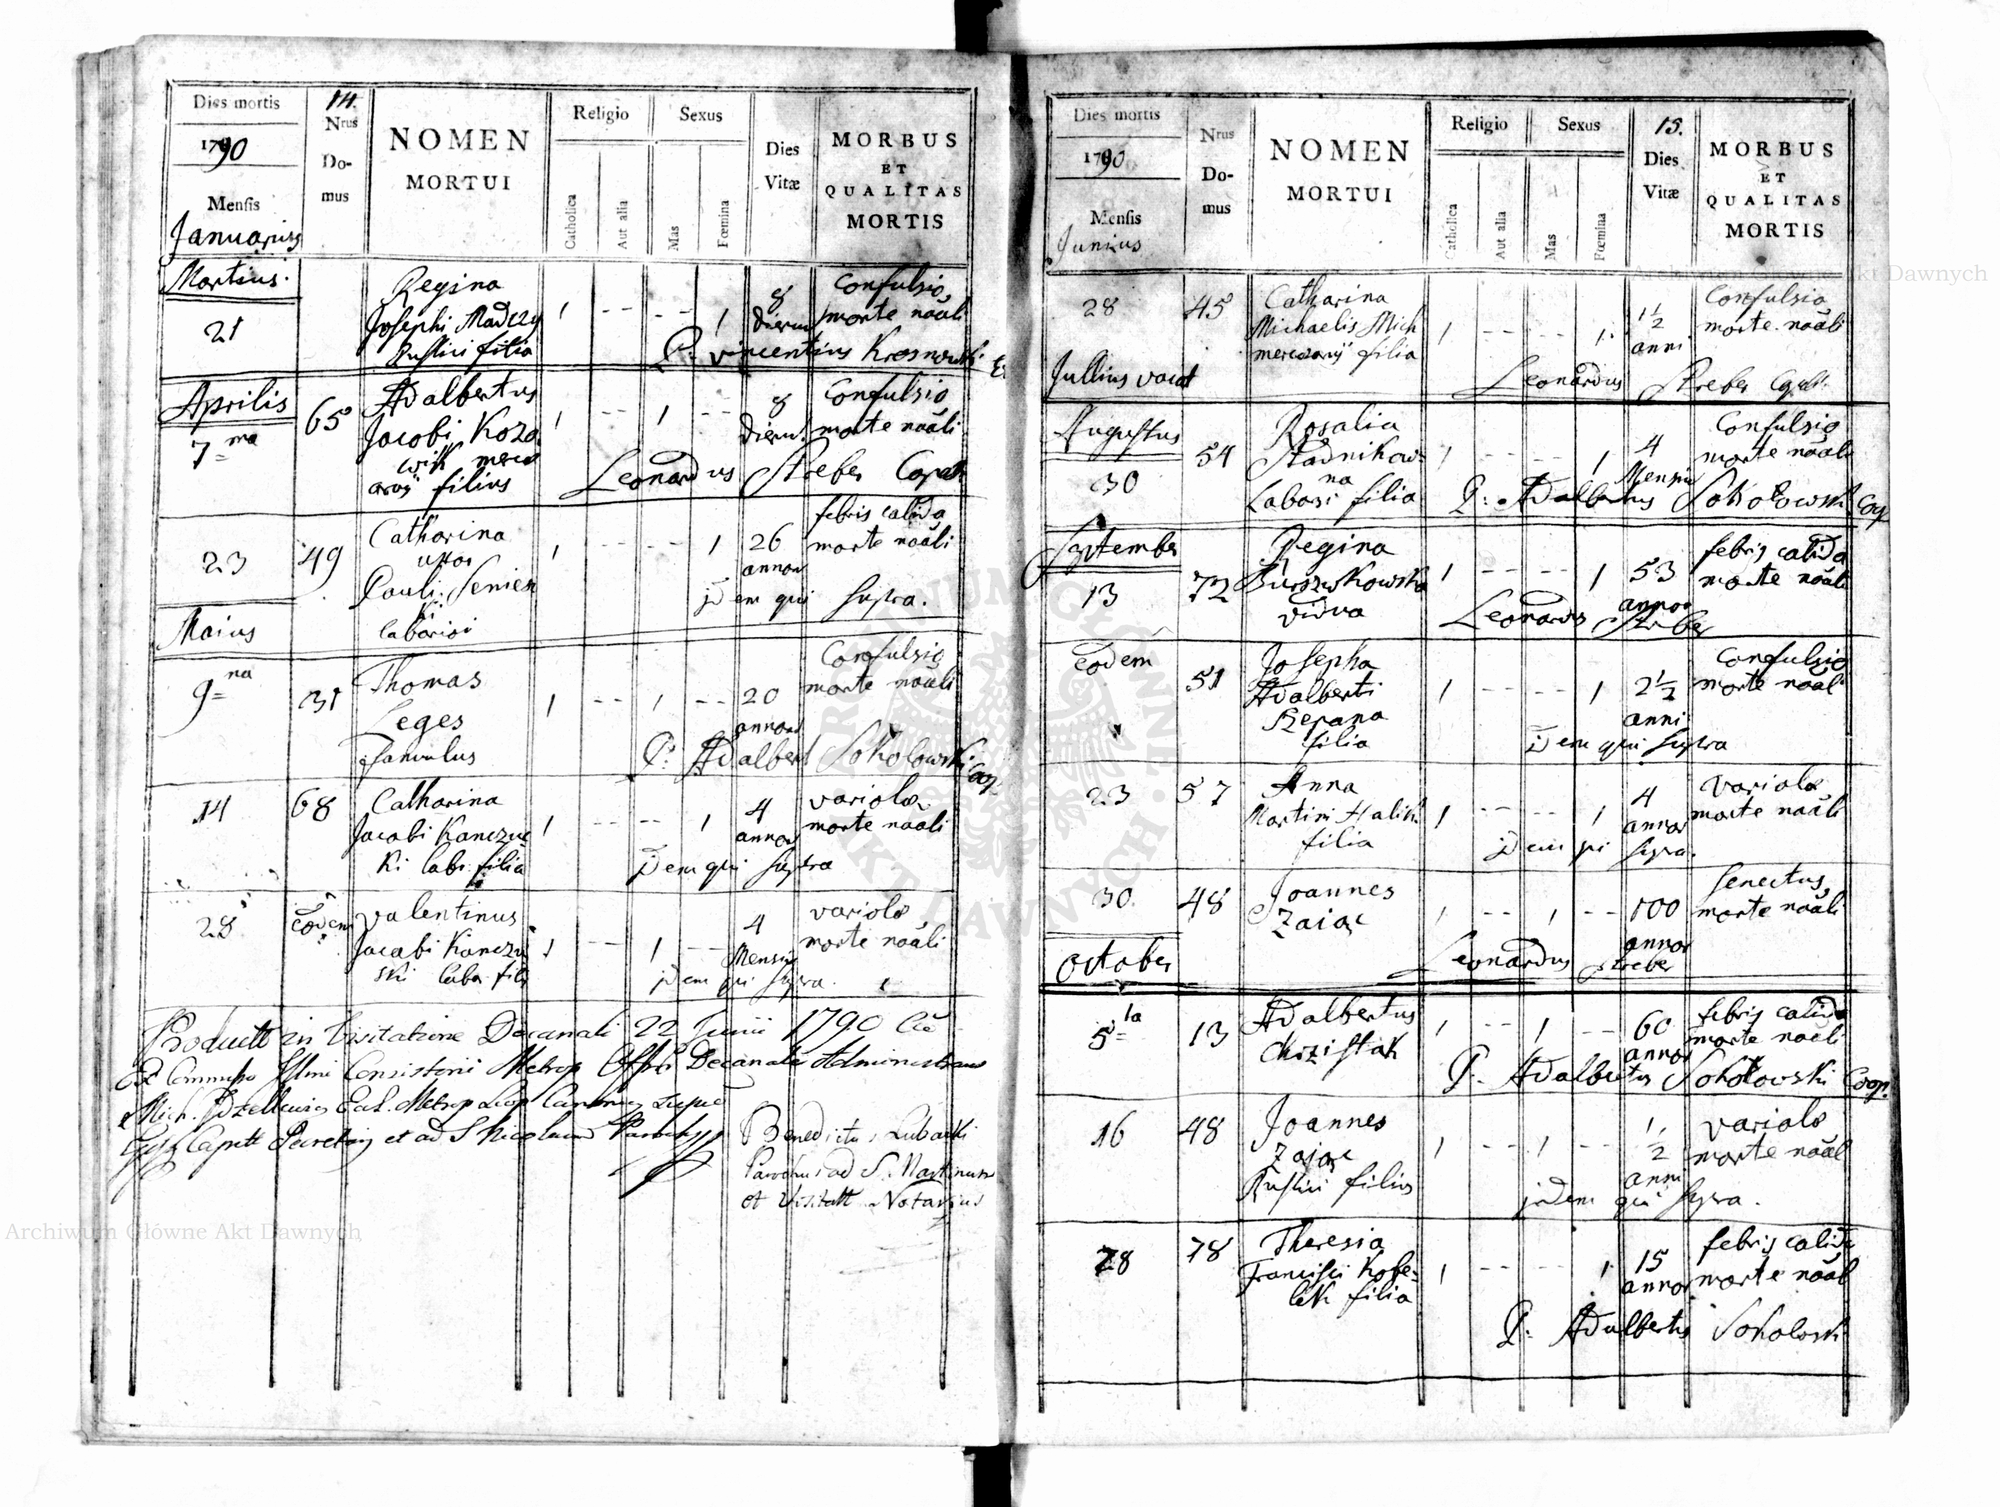 Dies mortis
1790
Mensis
Januarius
14.
Nrus
Do-
mus
NOMEN
MORTUI
Religio
Catholica
Aut alia
Sexus
Mas
Fœmina
Dies
Vitæ
MORBUS
ET
QUALITAS
MORTIS
Martius.
21
Regina
Josephi Madczy
Rustici filia
1 - - - - 1
8
dierum
Confulsio
morte nāāli
P: Vincentius Krosnowski
Aprilis
7ma
65
Adalbertus
Jacobi Kozo
wik merce
arij filius
1 - - 1 - -
8
dierum
Confulsio
morte nāāli
Leonardus Streber Copult
23
49
Catharina
uxor
Pauli Senien
ki
laboriosi
1 - - - - 1
26
annor
febris calida
morte nāāli
jdem qui supra.
Maius
9na
31
Thomas
Leges
famulus
1 - - 1 - -
20
annor
Confulsio
morte nāāli
P: Adalbert Sokolowski Coop.
14
68
Catharina
Jacobi Kanczu
ki labr filia
1 - - - - 1
4
annor
variolæ
morte nāāli
jdem qui supra
28
eodem
Valentinus
Jacobi Kanczu
ski labr fili
1 - - 1 - -
4
Mensiu
variolæ
morte nāāli
jdem qui supra.
Product in Visitatione Decanali 22 Junii 1790
Consistorii Metrop Decanalis Administrans
Mich.
et ad S Nicolaum
Benedictus Lubaski
Parochus ad S. Martinum
et Visitatt Notarius
Dies mortis
1790
Mensis
Junius
Nrus
Do-
mus
NOMEN
MORTUI
Religio
Catholica
Aut alia
Sexus
Mas
Fœmina
15.
Dies
Vitæ
MORBUS
ET
QUALITAS
MORTIS
28
45
Catharina
Michaelis Mich
mercenarij filia
1 - - - - 1
1 1/2
anni
Confulsio
morte nāāli
Leonardus Streber Copult.
Jullius vacat
Augustus
30
54
Rosalia
Stadnikow-
na
Laborsi filia
1 - - - - 1
4
Mensiu
Confulsio
morte nāāli
P: Adalbertus Sokołowski Coop
September
13
72
Regina
Burszwkowska
vidua
1 - - - - 1
53
annor
febris calida
morte nāāli
Leonardus Streber
eodem
51
Josepha
Adalberti
Szepana
filia
1 - - - - 1
2 1/2
anni
Confulsio
morte nāāli
jdem qui supra
23
57
Anna
Martini Halik
filia
1 - - - - 1
4
annor
variolæ
morte nāāli
jdem qui supra.
30.
48
Joannes
Zaiąc
1 - - 1 - -
100
annor
senectus
morte nāāli
Leonardus Streber
October
5ta
13
Adalbertus
Chrzistak
1 - - 1 - -
60
annor
febris calida
morte nāāli
P. Adalbertus Sokołowski Coop.
16
48
Joannes
Zając
Rustici filius
1 - - 1 - -
1/2
anni
variolæ
morte nāāli
jdem qui supra.
28
78
Theresia
Francisci Kose-
lek filia
1 - - - - 1
15
annor
febris calida
morte nāāli
P: Adalbertus Sokoloski
Archiwum Główne Akt Dawnych
Archiwum Główne Akt Dawnych
ARCHIWUM GŁÓWNE AKT DAWNYCH